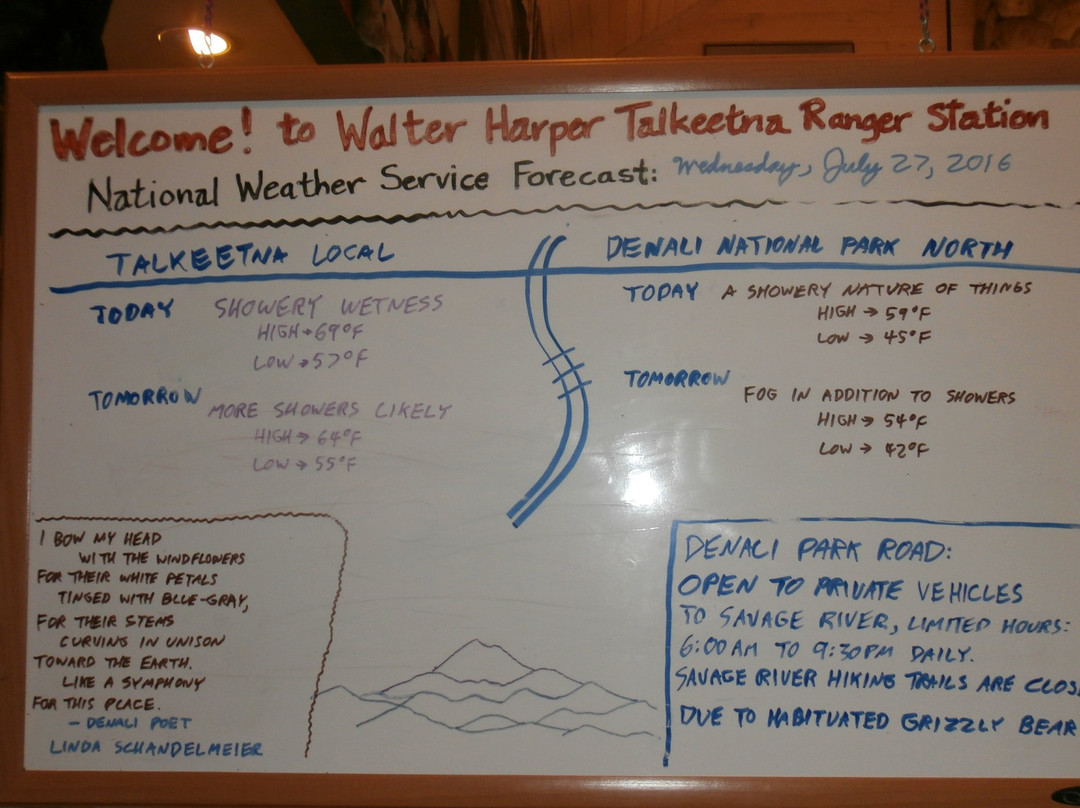 Welcome! to Walter Harper Talkeetna Ranger Station
National Weather Service Forecast: Wednesday, July 27, 2016
TALKEETNA LOCAL
TODAY SHOWERY WETNESS
HIGH → 69°F
LOW → 57°F
TOMORROW MORE SHOWERS LIKELY
HIGH → 64°F
LOW → 55°F
DENALI NATIONAL PARK NORTH
TODAY A SHOWERY NATURE OF THINGS
HIGH → 59°F
LOW → 45°F
TOMORROW
FOG IN ADDITION TO SHOWERS
HIGH → 54°F
LOW → 42°F
I BOW MY HEAD
WITH THE WINDFLOWERS
FOR THEIR WHITE PETALS
TINGED WITH BLUE-GRAY,
FOR THEIR STEMS
CURVING IN UNISON
TOWARD THE EARTH.
LIKE A SYMPHONY
FOR THIS PLACE.
- DENALI POET
LINDA SCHANDELMEIER
DENALI PARK ROAD:
OPEN TO PRIVATE VEHICLES
TO SAVAGE RIVER, LIMITED HOURS:
6:00 AM TO 9:30 PM DAILY.
SAVAGE RIVER HIKING TRAILS ARE CLOS
DUE TO HABITUATED GRIZZLY BEAR